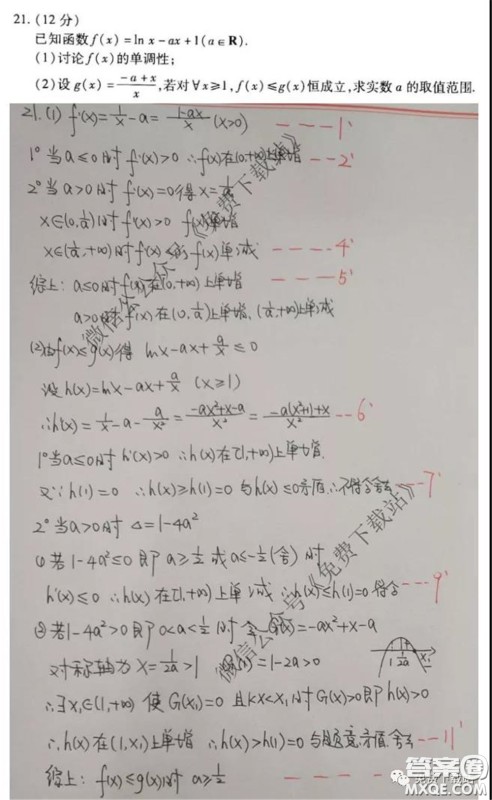 21.(12分)
已知函数f(x)=ln x-ax+1(a∈R).
(1)讨论f(x)的单调性;
(2)设g(x)=(-a+x)/x,若对∀x≥1,f(x)≤g(x)恒成立,求实数a的取值范围.
21.(1) f'(x)=1/x-a=(1-ax)/x (x>0) ---1'
1°当a≤0时f'(x)>0 ∴f(x)在(0,+∞)上单增 --2'
2°当a>0时f'(x)=0得x=1/a
x∈(0,1/a)时f'(x)>0 f(x)单增
x∈(1/a,+∞)时f'(x)<0 f(x)单减 ----4'
综上:a≤0时f(x)在(0,+∞)上单增 ---5'
a>0时f(x)在(0,1/a)上单增,(1/a,+∞)上单减
(2)由f(x)≤g(x)得 lnx-ax+a/x≤0
设h(x)=lnx-ax+a/x (x≥1)
∴h'(x)=1/x-a-a/x²=(-ax²+x-a)/x²=(-a(x²+1)+x)/x² --6'
1°当a≤0时h'(x)>0 ∴h(x)在[1,+∞)上单增.
又∵h(1)=0 ∴h(x)≥h(1)=0与h(x)≤0矛盾,∴不符合舍去 --7'
2°当a>0时 △=1-4a²
①若1-4a²≤0即a≥1/2或a≤-1/2(舍)时
h'(x)≤0 ∴h(x)在[1,+∞)上单减 ∴h(x)≤h(1)=0符合 --9'
②若1-4a²>0即0<a<1/2时令G(x)=-ax²+x-a
对称轴为x=1/2a>1 G(1)=1-2a>0
1 1/2a x₁
∴∃x₁∈(1,+∞)使G(x₁)=0且1<x<x₁时G(x)>0即h'(x)>0
∴h(x)在(1,x₁)上单增 ∴h(x)>h(1)=0与题意矛盾.舍去 --11'
综上:f(x)≤g(x)时 a≥1/2 ----
微信公众号《免费下载站》
微信公众号《免费下载站》
答案圈
MXQE.COM